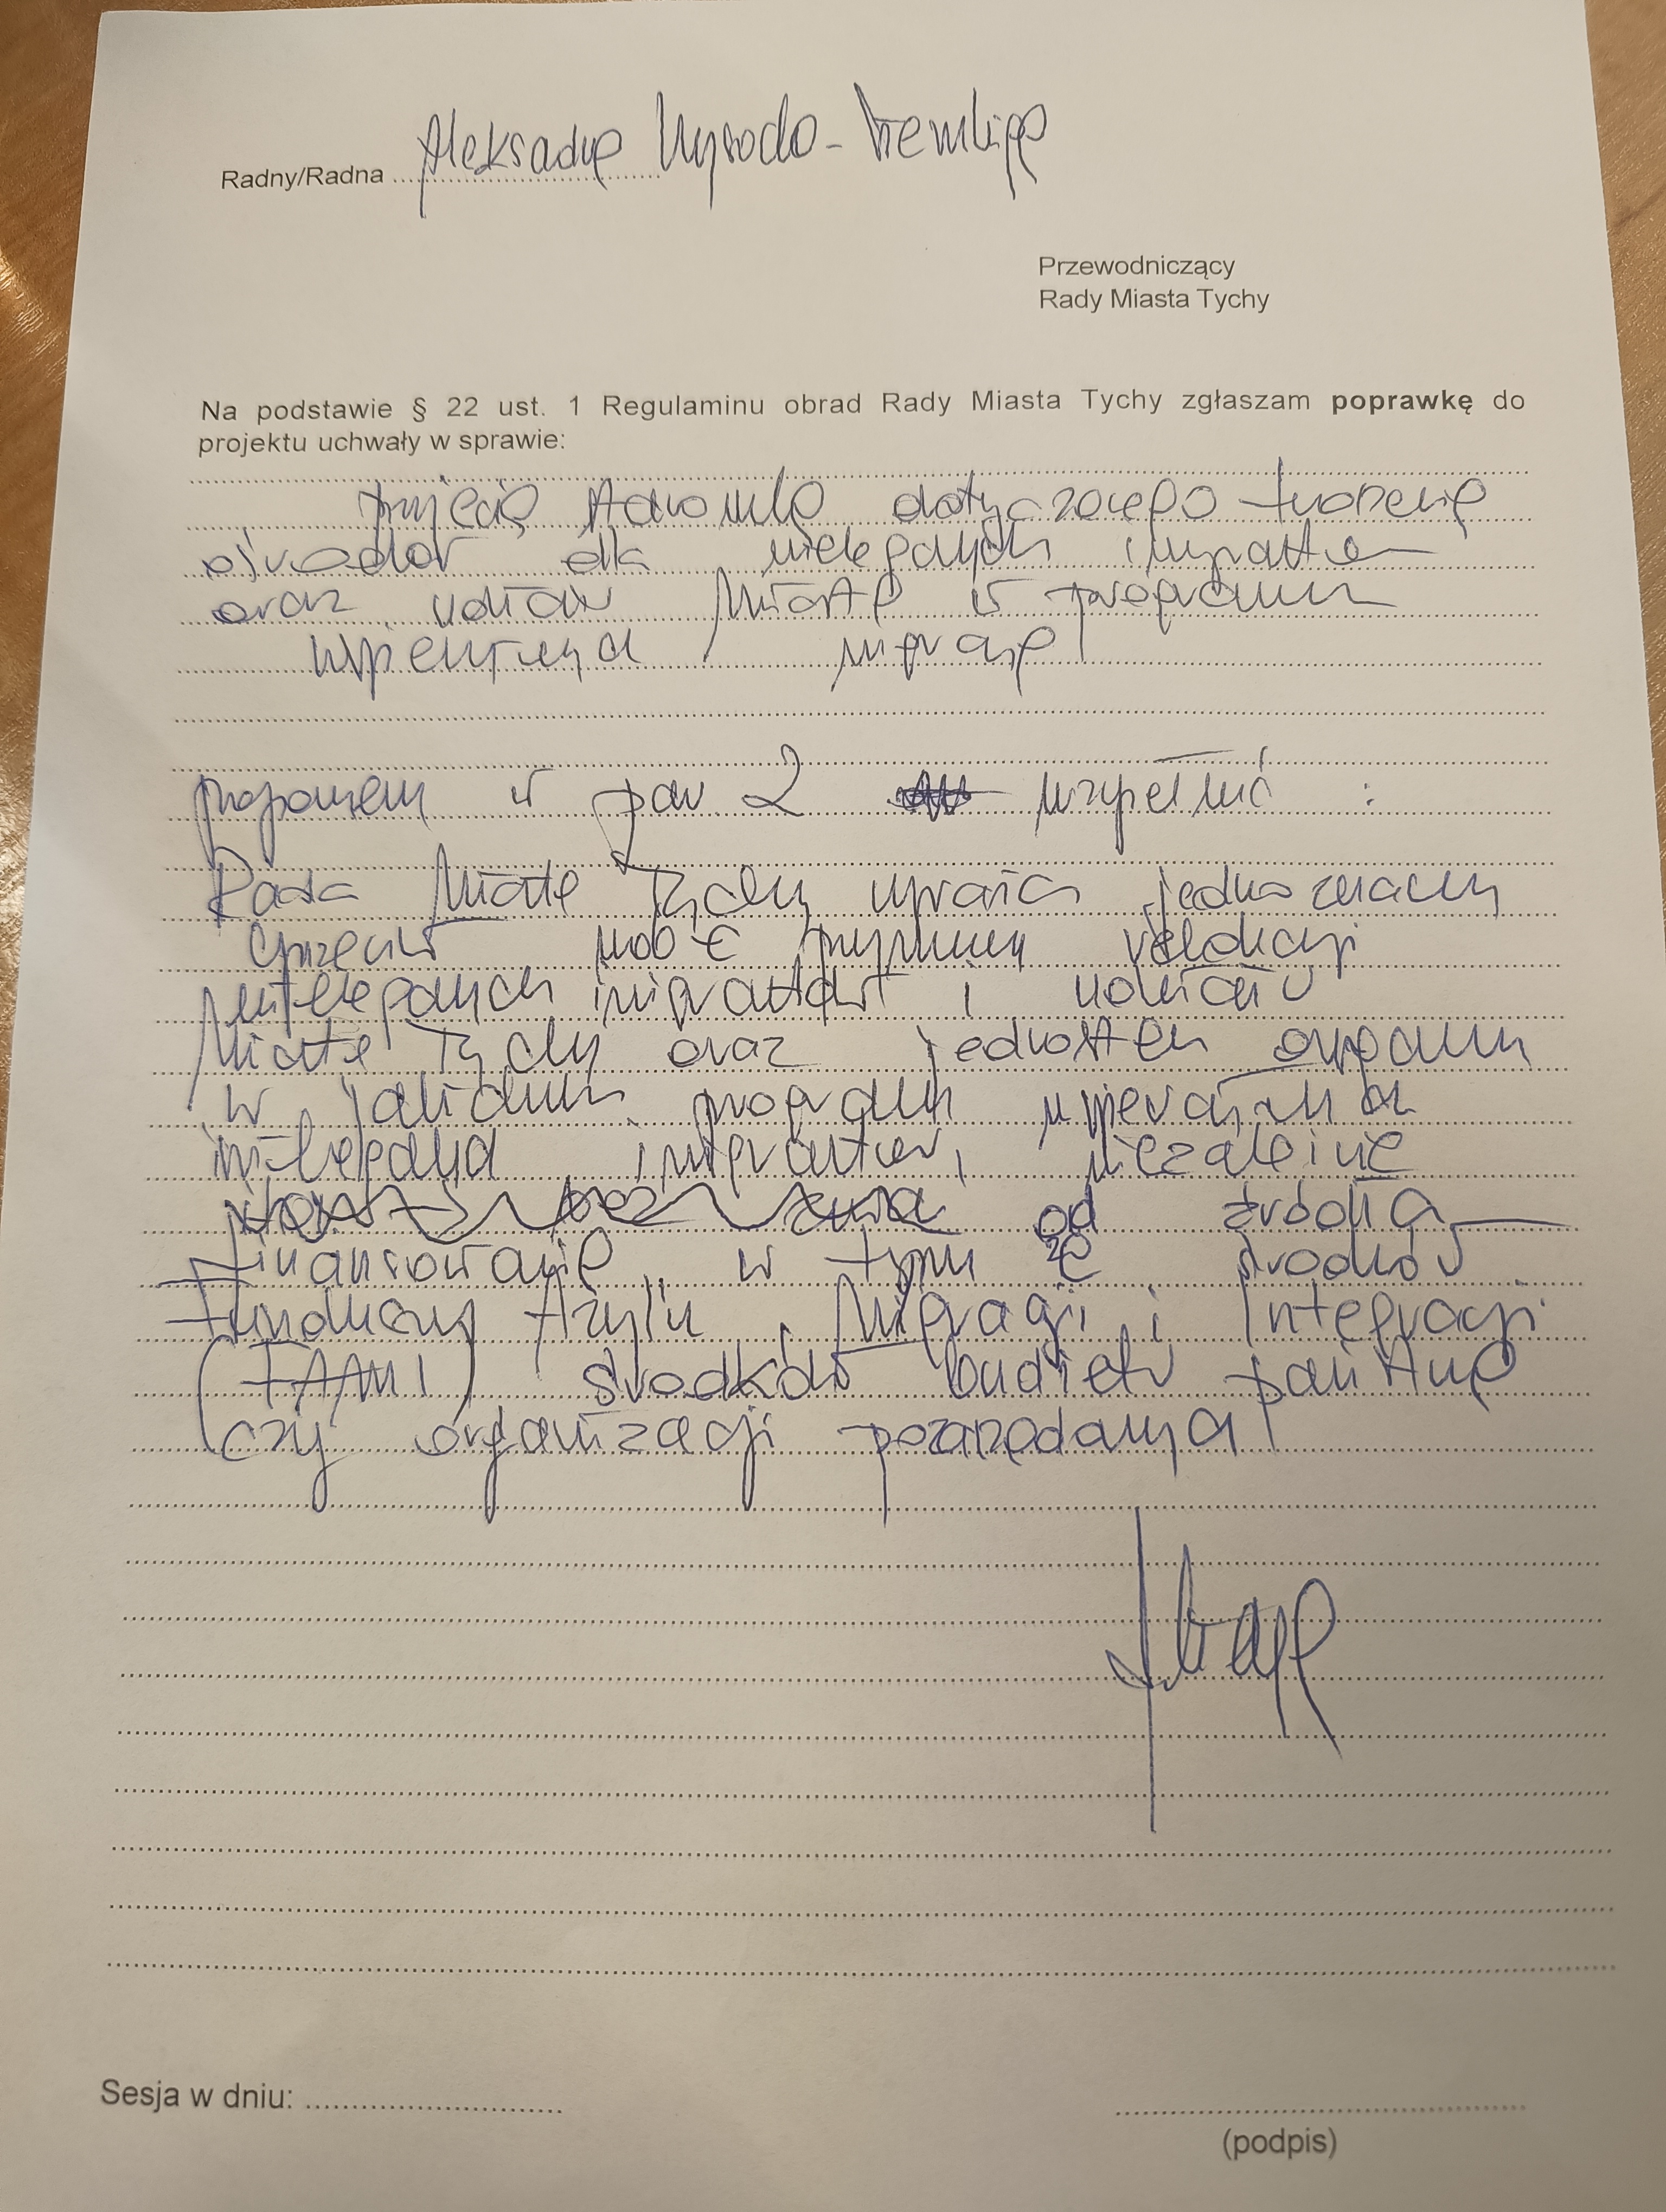 Radny/Radna Aleksandra Wysocka-
Przewodniczący
Rady Miasta Tychy
Na podstawie § 22 ust. 1 Regulaminu obrad Rady Miasta Tychy zgłaszam poprawkę do
projektu uchwały w sprawie:
przyjęcia stanowiska dotyczącego tworzenia
ośrodków dla nielegalnych imigrantów
oraz udziału Miasta w programach
wspierających migrację
proponuję w par 2 uzupełnić :
Rada Miasta Tychy wyraża jednoznaczny
sprzeciw wobec przymusowej relokacji
nielegalnych imigrantów i udziału
Miasta Tychy oraz jednostek
w jakichkolwiek programach wspierających
nielegalnych imigrantów, niezależnie
od źródła
finansowania, w tym ze środków
Funduszu Azylu, Migracji i Integracji
(FAMI) środków budżetu państwa
czy organizacji pozarządowych
Sesja w dniu:
(podpis)